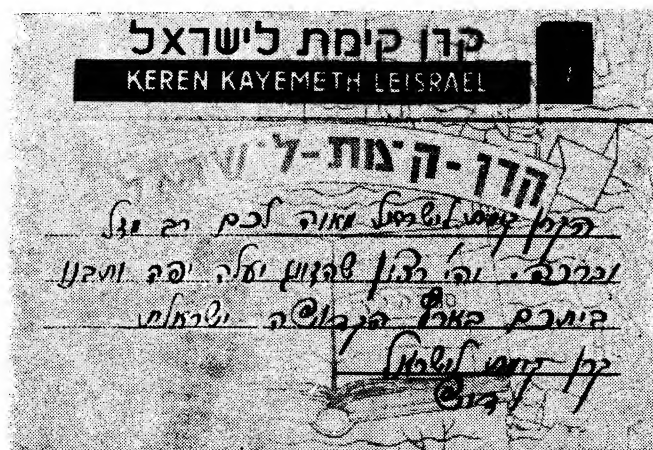 קרן קימת לישראל
KEREN KAYEMETH LEISRAEL
קרן-קימת-לישראל
הקרן קימת לישראל מאוה לכם רב מזל
וברכה. יהי רצון שהזווג יעלה יפה ותבנו
ביתכם בארץ הקדושה ישראלית
קרן קימת לישראל